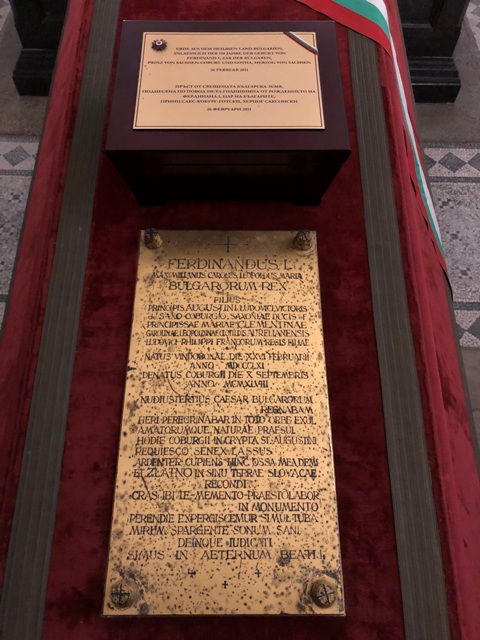 ERDE AUS DEM HEILIGEN LAND BULGARIEN,
ANLAESSLICH DER 160 JAHRE DER GEBURT VON
FERDINAND I, ZAR DER BULGAREN,
PRINZ VON SACHSEN-COBURG UND GOTHA, HERZOG VON SACHSEN
26 FEBRUAR 2021
ПРЪСТ ОТ СВЕЩЕНАТА БЪЛГАРСКА ЗЕМЯ,
ПОДНЕСЕНА ПО ПОВОД 160-ТА ГОДИШНИНА ОТ РОЖДЕНИЕТО НА
ФЕРДИНАНД I, ЦАР НА БЪЛГАРИТЕ,
ПРИНЦ САКС-КОБУРГ-ГОТСКИ, ХЕРЦОГ САКСОНСКИ
26 ФЕВРУАРИ 2021
FERDINANDUS I.
MAXIMILIANUS CAROLUS LEOPOLDUS MARIA
BULGARORUM REX
FILIUS
PRINCIPIS AUGUSTI LUDOVICI VICTORIS
A SAXO-COBURGO, SAXONIAE DUCIS ET
PRINCIPISSAE MARIAE CLEMENTINAE
CAROLINAE LEOPOLDINAE CLOTILDIS AURELIANENSIS
LUDOVICI PHILIPPI FRANCORUM REGIS FILIAE
NATUS VINDOBONAE DIE XXVI FEBRUARII
ANNO MDCCCLXI
DENATUS COBURGII DIE X SEPTEMBRIS
ANNO MCMXLVIII
NUDIUSTERTIUS CAESAR BULGARORUM
REGNABAM
HERI PEREGRINABAR IN TOTO ORBE EXUL
AMATORUMQUE NATURAE PRAESUL
HODIE COBURGII IN CRYPTA ST. AUGUSTINI
REQUIESCO SENEX LASSUS
ARDENTER CUPIENS HINC OSSA MEA DEMI
ET ZLATNO IN SINU TERRAE SLOVACAE
RECONDI
CRAS IBI TE-MEMENTO-PRAESTOLABOR
IN MONUMENTO
PERENDIE EXPERGISCEMUR SIMUL TUBA
MIRUM SPARGENTE SONUM SANI
DEINQUE IUDICATI
SIMUS IN AETERNUM BEATI